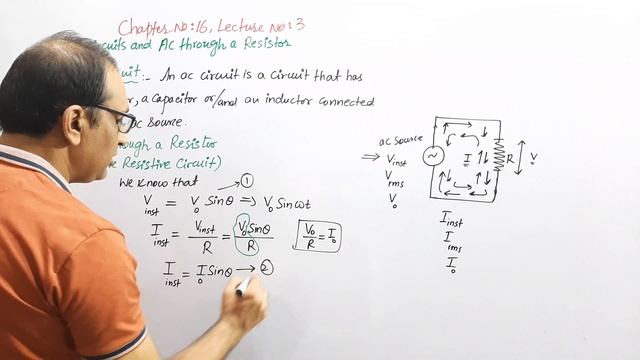 Chapter No: 16, Lecture No: 3
cuits and AC through a Resistor
uit:- An ac circuit is a circuit that has
r, a capacitor or/and an inductor connected
c source.
rough a Resistor
e Resistive Circuit)
We know that
①
V inst = V₀ Sinθ => V₀ Sin ωt
I inst = V inst / R = V₀ Sinθ / R
V₀ / R = I₀
I inst = I₀ Sinθ → ②
ac source
=> V inst
V rms
V₀
I
R
V
I inst
I rms
I₀